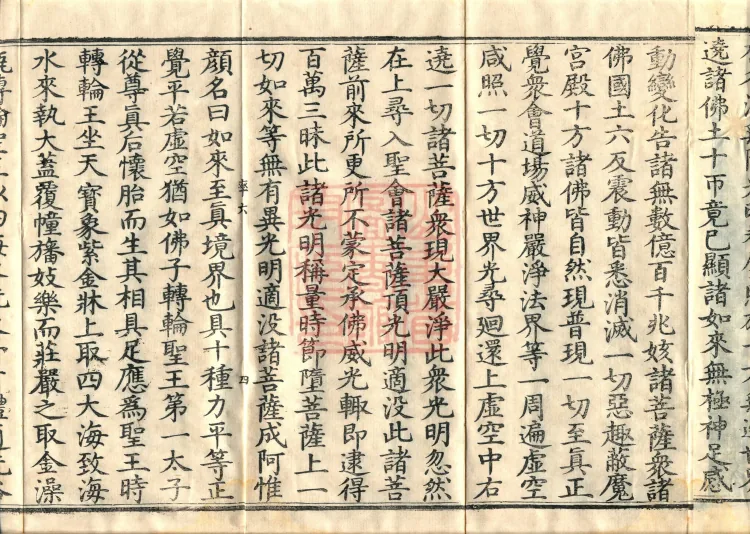 遶諸佛土十帀竟已顯諸如來無極神足感
動變化告諸無數億百千兆姟諸菩薩衆諸
佛國土六反震動皆悉消滅一切惡趣蔽魔
宮殿十方諸佛皆自然現普現一切至眞正
覺衆會道場威神嚴淨法界等一周遍虛空
咸照一切十方世界光尋迴還上虛空中右
遶一切諸菩薩衆現大嚴淨此衆光明忽然
在上尋入聖會諸菩薩頂光明適没此諸菩
薩前來所更所不蒙定承佛威光輙即逮得
百萬三昧此諸光明稱量時節墮菩薩上一
切如來等無有異光明適没諸菩薩成阿惟
六 四
顔名曰如來至眞境界也具十種力平等正
覺平若虛空猶如佛子轉輪聖王第一太子
從尊眞后懷胎而生其相具足應爲聖王時
轉輪王坐天寶象紫金牀上取四大海致海
水來執大蓋覆幢旛妓樂而莊嚴之取金澡